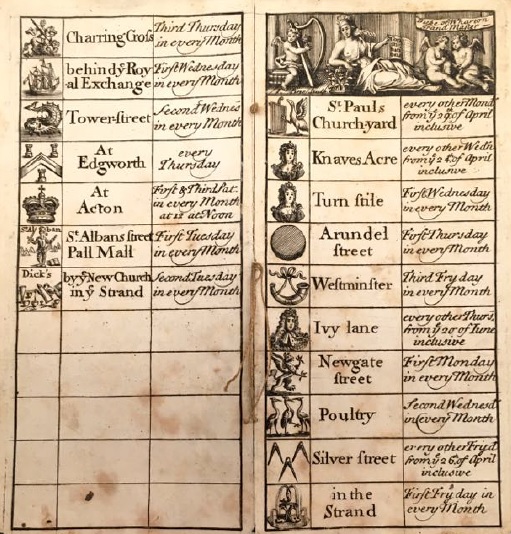 Charring Cross
Third Thursday
in every Month
behind yͤ Roy
al Exchange
First Wednesday
in every Month
Tower street
Second Wednes
in every Month
At
Edgworth
every
Thursday
At
Acton
First & Third Sat:
in every Month
at 12 at Noon
St Alban
St. Albans street
Pall Mall
First Tuesday
in every Month
Dick's
by yͤ New Church
in yͤ Strand
Second Tuesday
in every Month
St. Pauls
Church-yard
every other Mond
from yͤ 29 of April
inclusive
Knaves Acre
every other Wedn
from yͤ of April
inclusive
Turn stile
First Wednesday
in every Month
Arundel
street
First Thursday
in every Month
Westminster
Third Fryday
in every Month
Ivy lane
every other Thurs,
from yͤ 20 of June
inclusive
Newgate
street
First Monday
in every Month
Poultry
Second Wednesd
in every Month
Silver street
every other Fryd
from yͤ 26 of April
inclusive
in the
Strand
First Fryday in
every Month